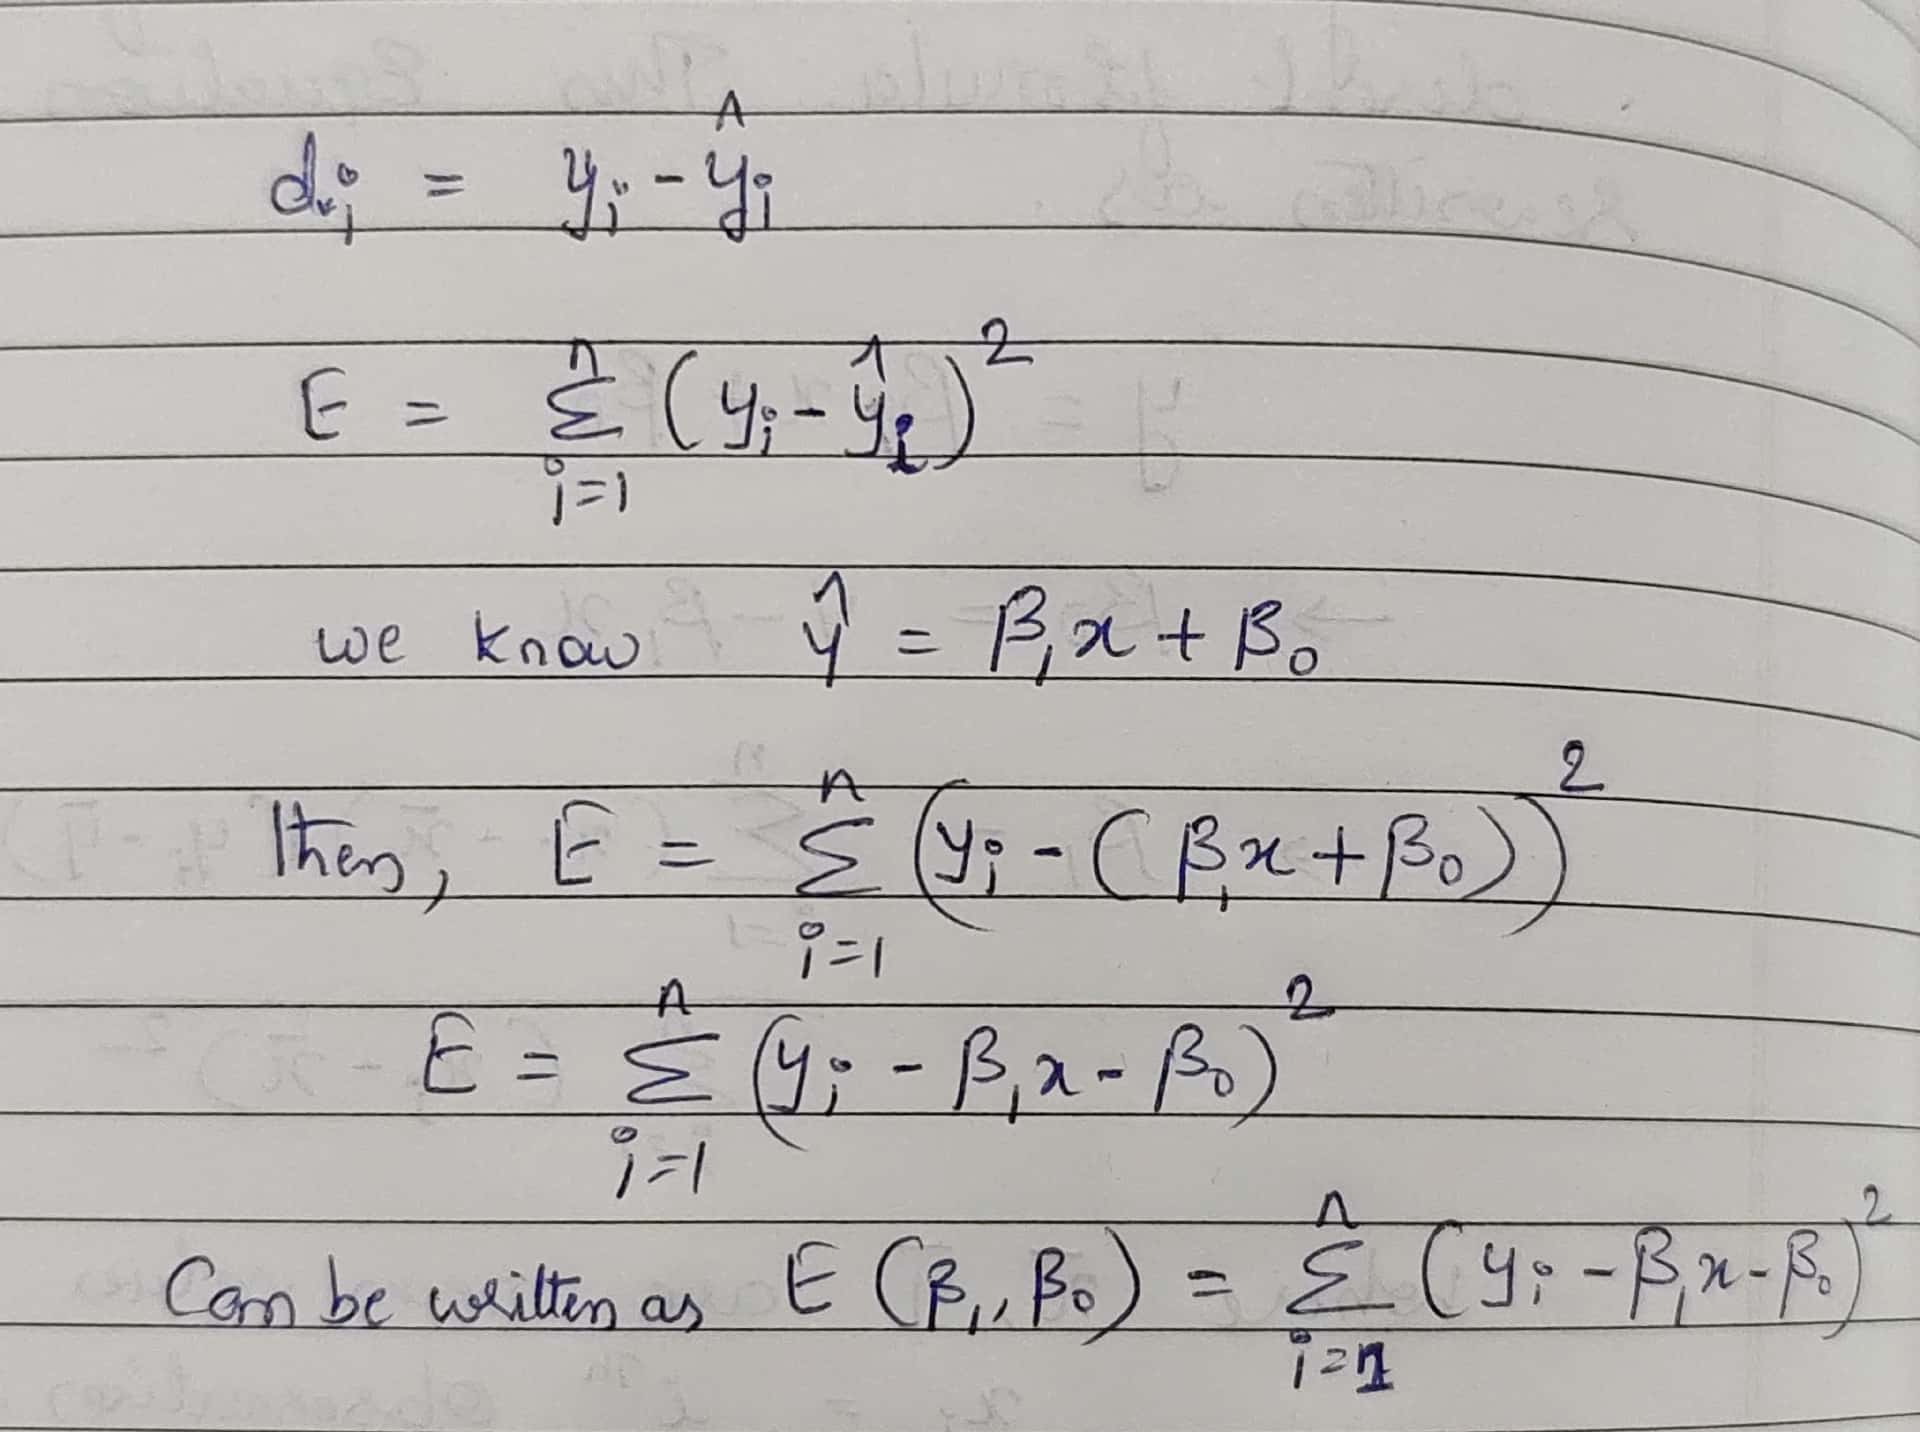 dᵢ = yᵢ - ŷᵢ
E = Σⁿᵢ₌₁ (yᵢ - ŷᵢ)²
we know ŷ = β₁x + β₀
then, E = Σⁿᵢ₌₁ (yᵢ - (β₁x + β₀))²
E = Σⁿᵢ₌₁ (yᵢ - β₁x - β₀)²
Can be written as E (β₁, β₀) = Σⁿᵢ₌₁ (yᵢ - β₁x - β₀)²